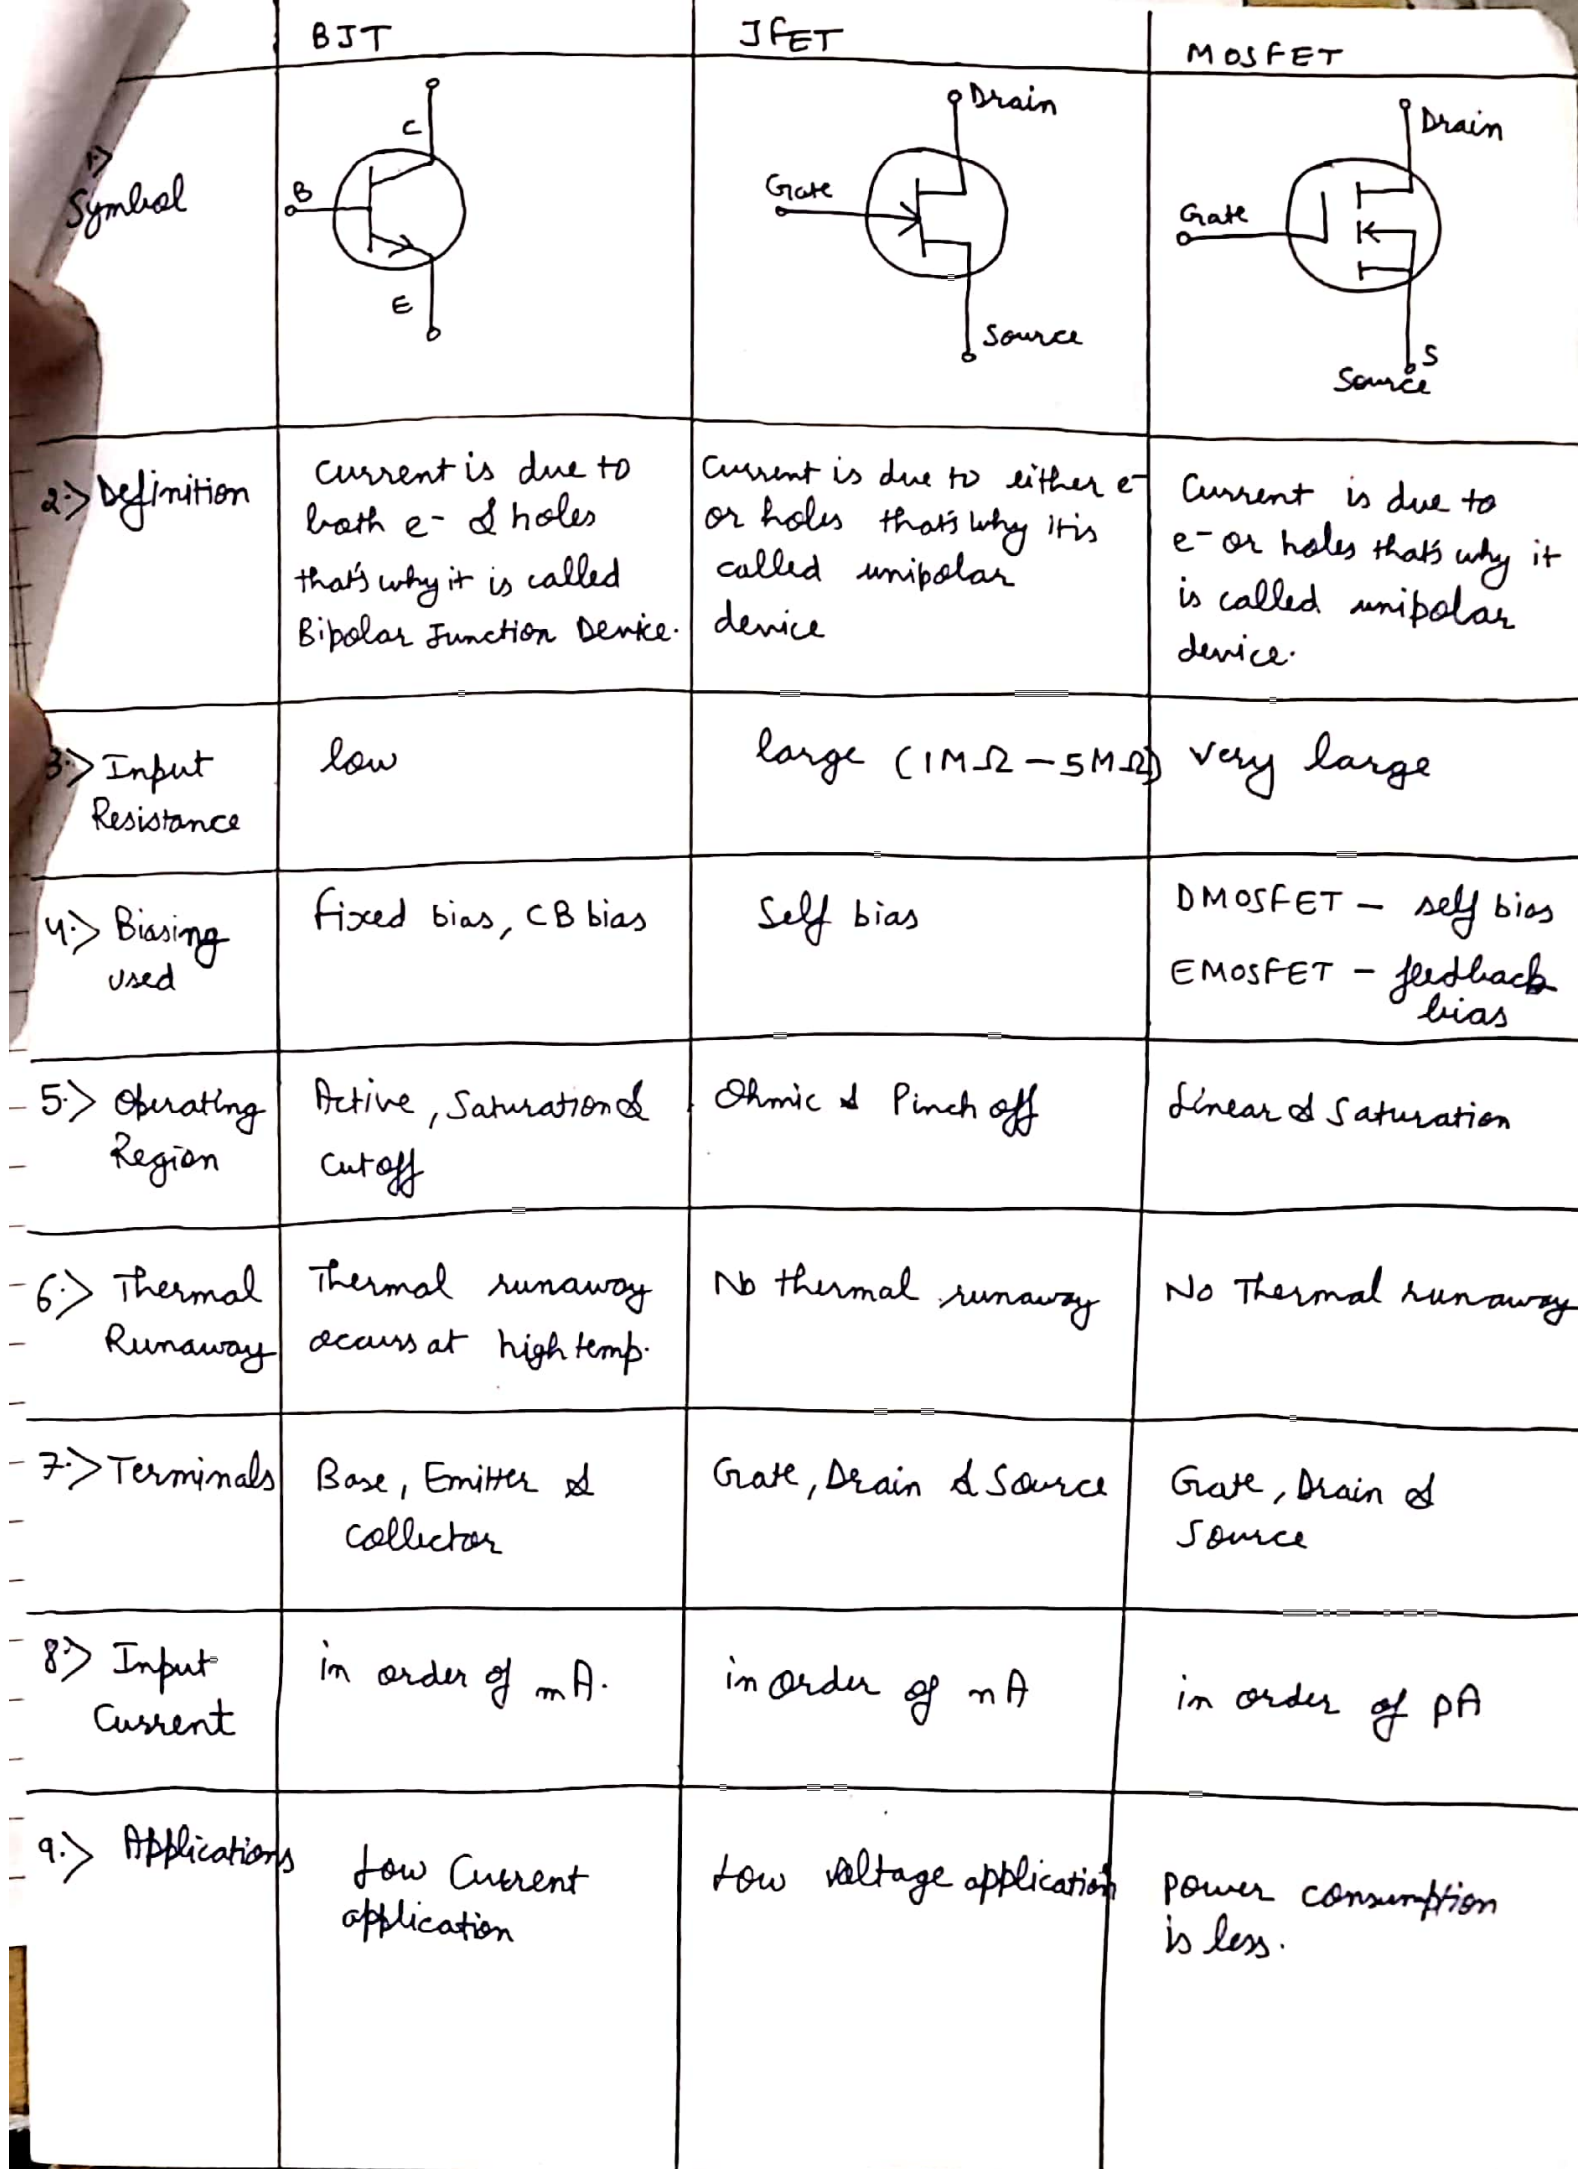 BJT JFET MOSFET
1.>
Symbol
C
B
E
Drain
Gate
Source
Drain
Gate
S
Source
2.> Definition
Current is due to
both e- & holes
that's why it is called
Bipolar Junction Device.
Current is due to either e-
or holes that's why it is
called unipolar
device
Current is due to
e- or holes that's why it
is called unipolar
device.
3.> Input
Resistance
low
large (1MΩ - 5MΩ)
very large
4.> Biasing
used
fixed bias, CB bias
Self bias
DMOSFET - self bias
EMOSFET - feedback
bias
5.> Operating
Region
Active, Saturation &
Cutoff
Ohmic & Pinch off
Linear & Saturation
6.> Thermal
Runaway
Thermal runaway
occurs at high temp.
No thermal runaway
No Thermal runaway
7.> Terminals
Base, Emitter &
Collector
Gate, Drain & Source
Gate, Drain &
Source
8.> Input
Current
in order of mA.
in order of nA
in order of pA
9.> Applications
Low Current
application
Low voltage application
power consumption
is less.